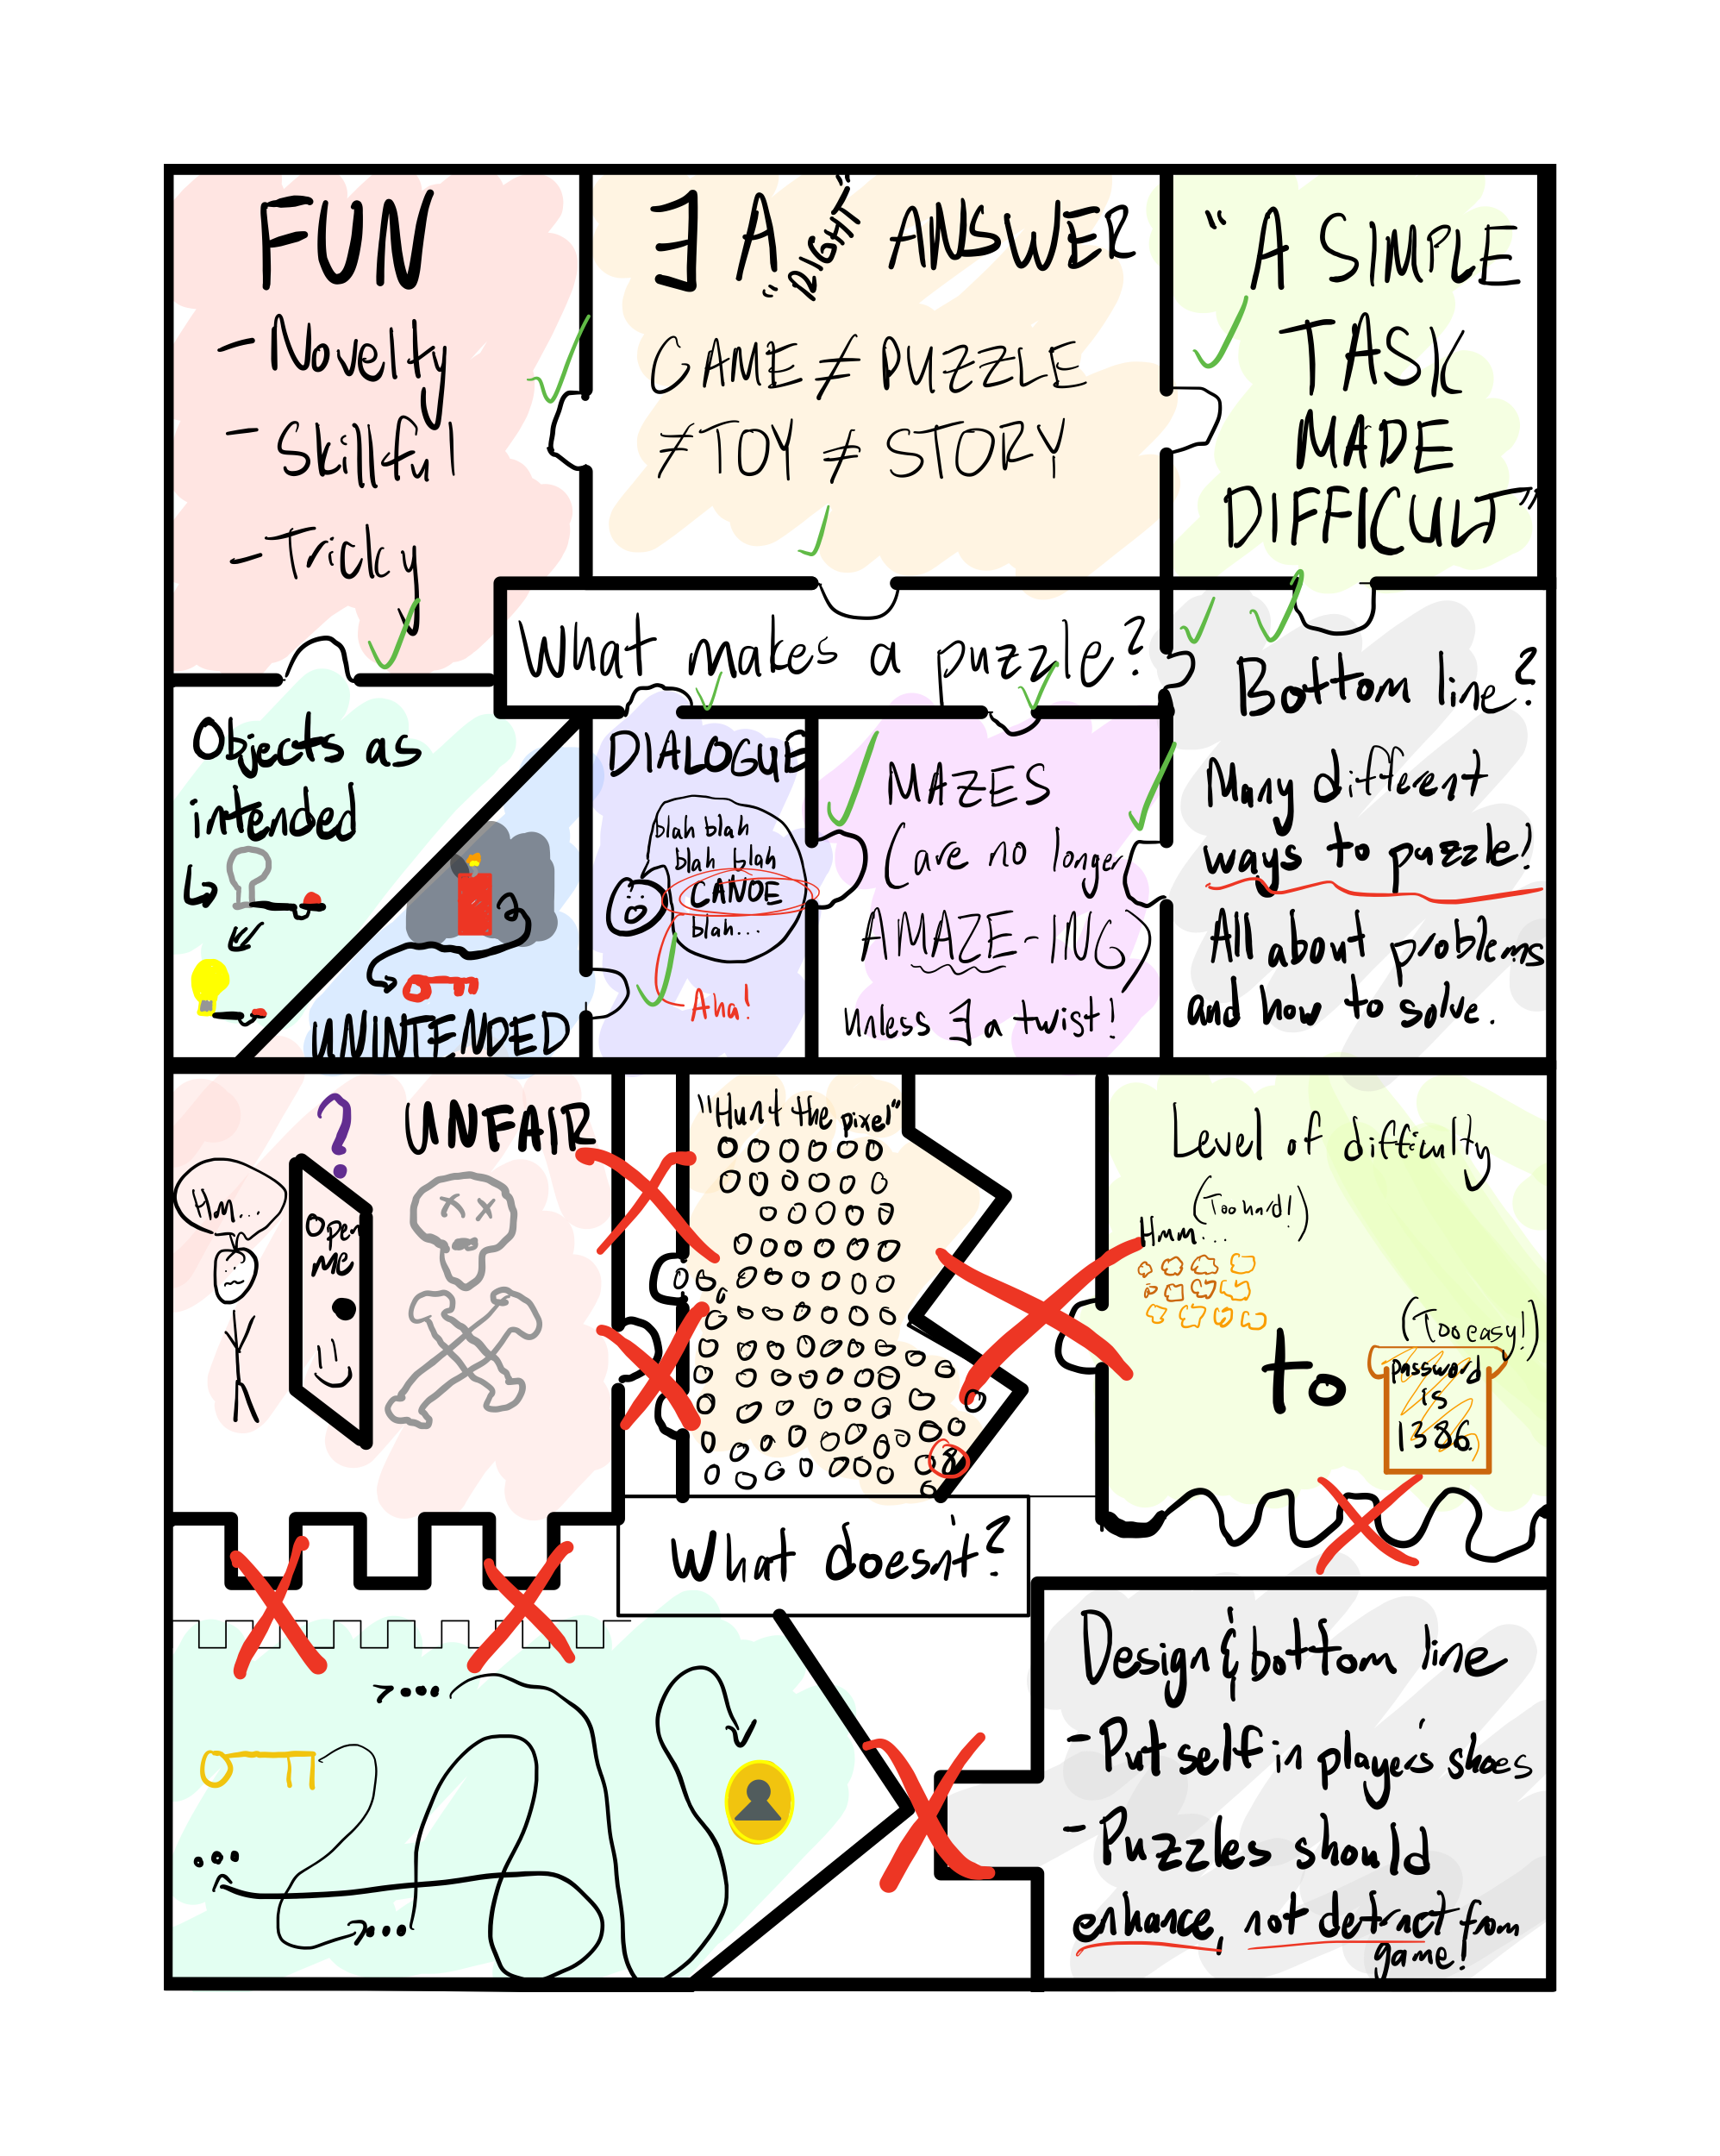 FUN
- Novelty
- Skillful
- Tricky
∃ A "RIGHT" ANSWER
GAME ≠ PUZZLE
≠ TOY ≠ STORY
"A SIMPLE
TASK
MADE
DIFFICULT"
What makes a puzzle?
Objects as
intended
UNINTENDED
DIALOGUE
blah blah
blah blah
CANOE
blah...
Aha!
MAZES
(are no longer
AMAZE-ING)
unless ∃ a twist!
Bottom line?
Many different
ways to puzzle!
All about problems
and how to solve.
?
UNFAIR
Hm...
Open
me
"Hunt the pixel"
8
Level of difficulty
(Too hard!)
Hmm...
to
(Too easy!)
password
is
1386
What doesn't?
Design & bottom line
- Put self in player's shoes
- Puzzles should
enhance, not detract from
game!